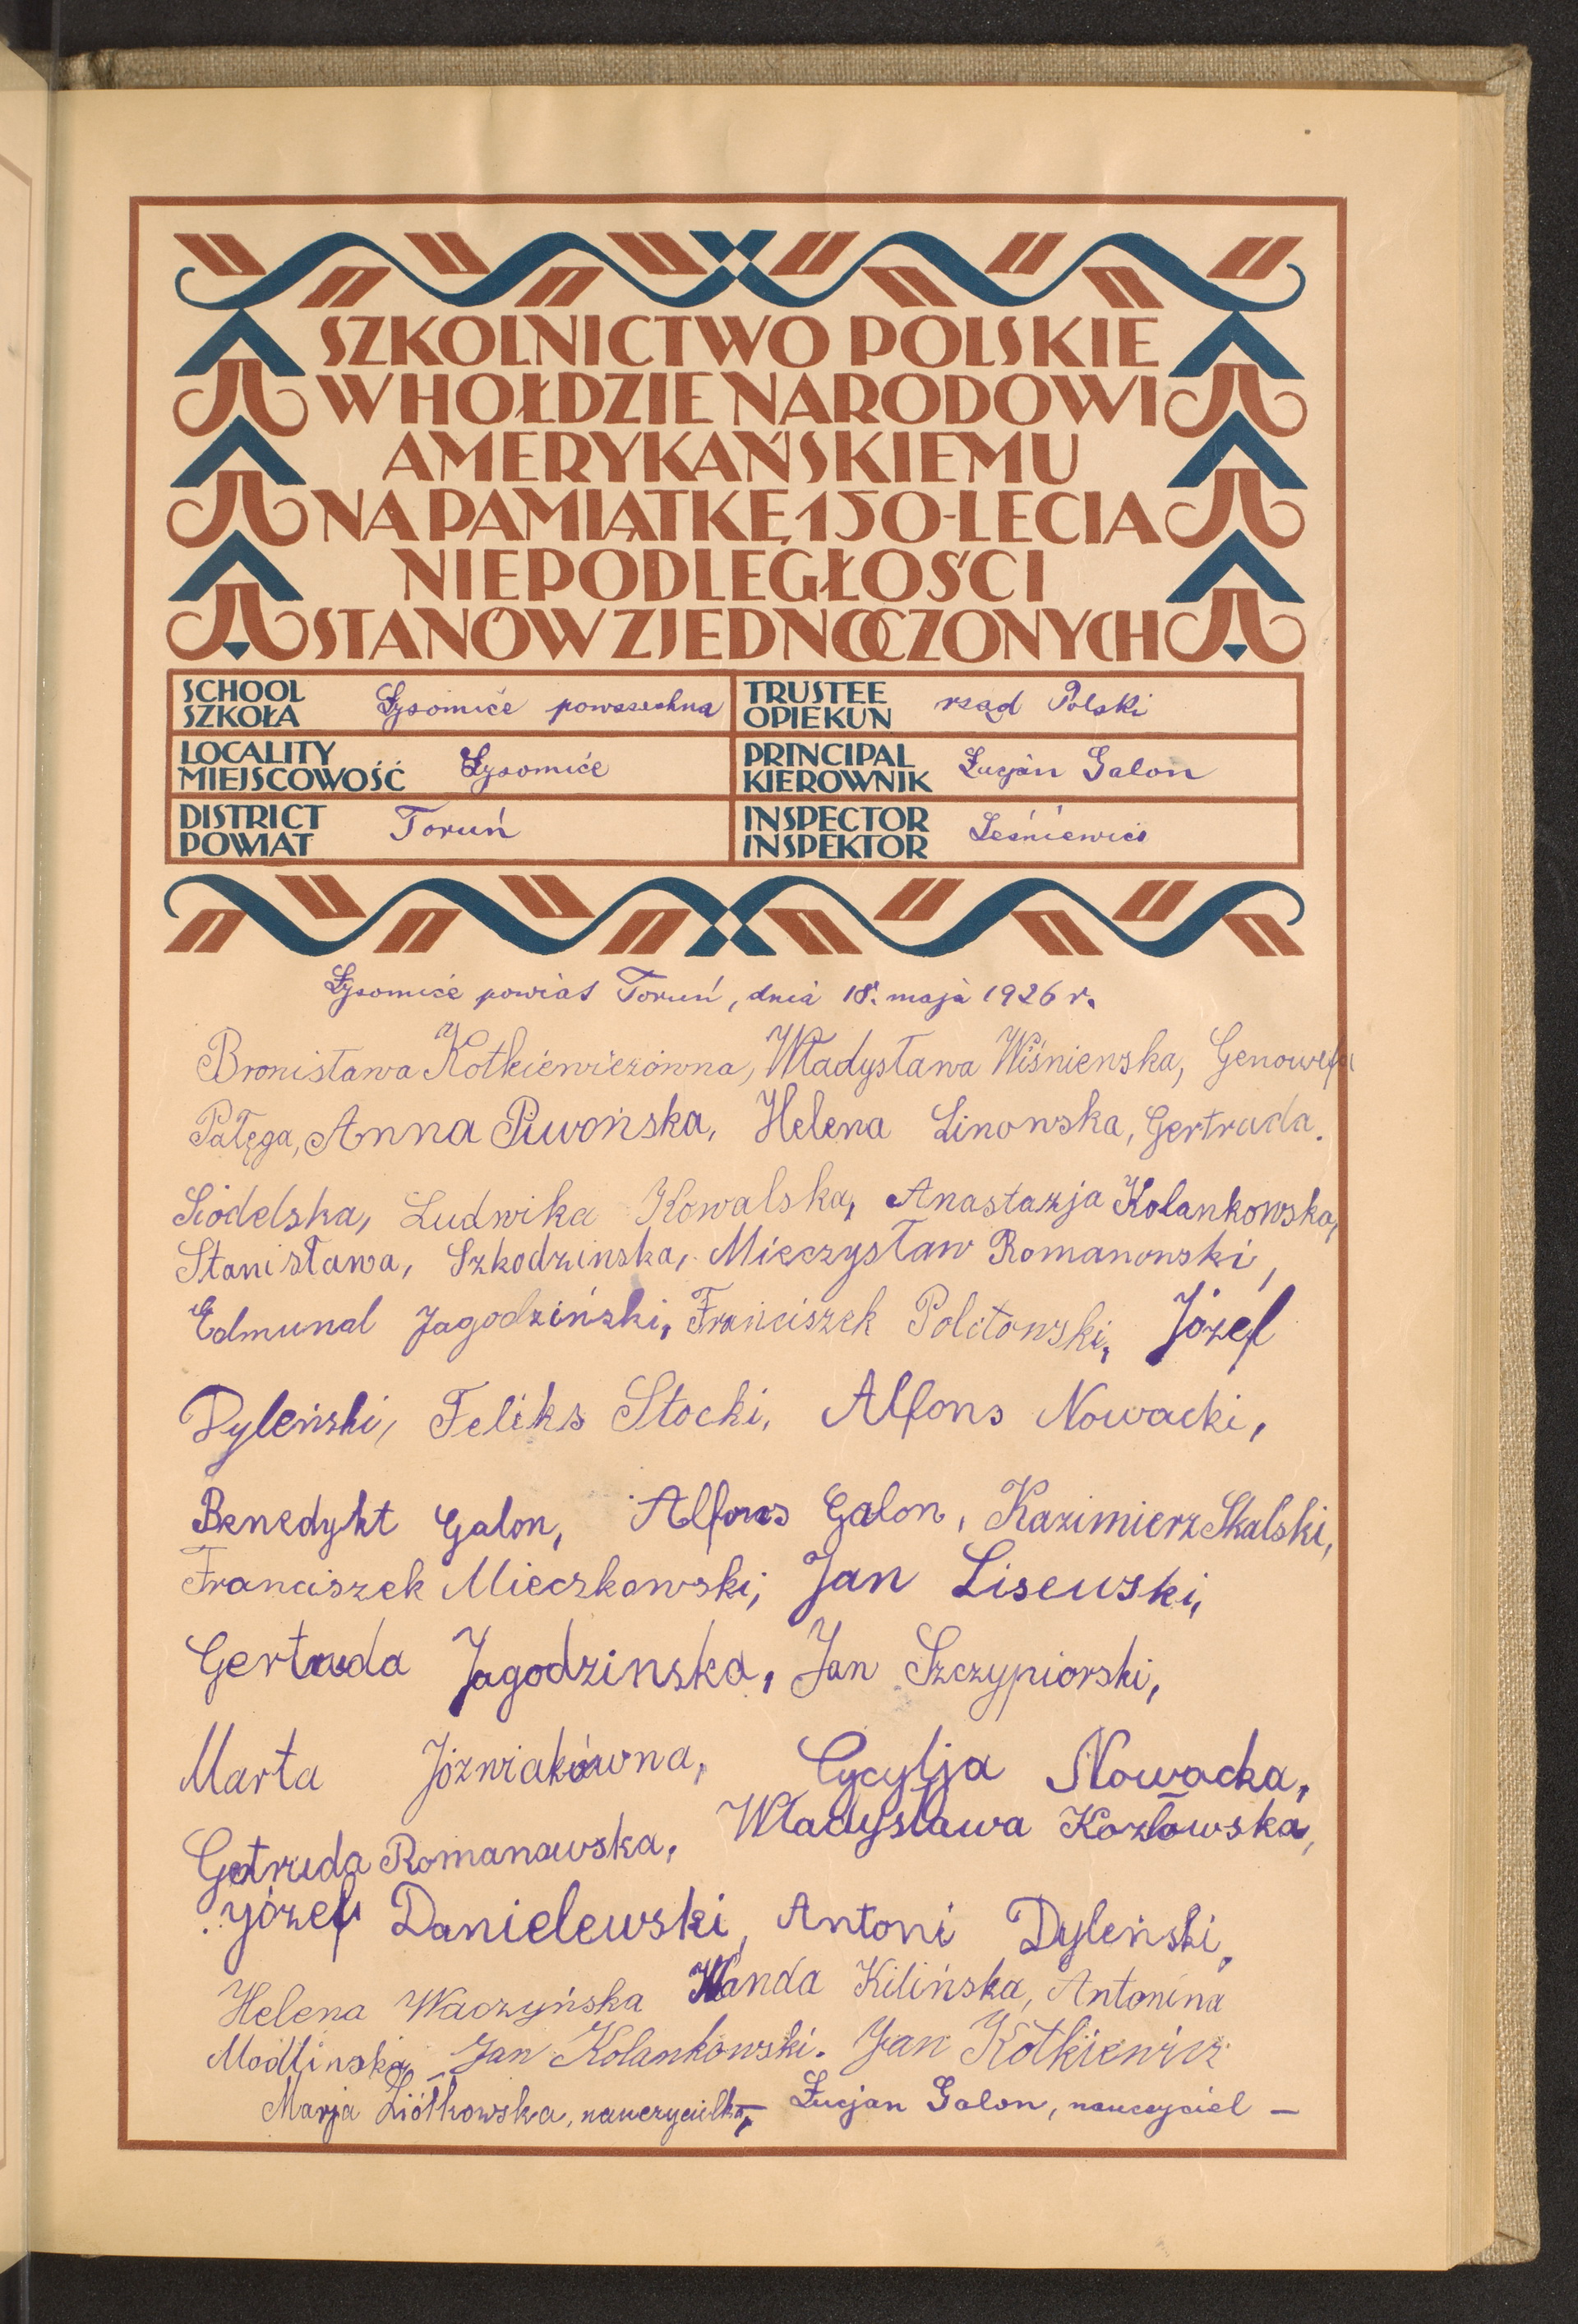 SZKOLNICTWO POLSKIE
W HOŁDZIE NARODOWI
AMERYKAŃSKIEMU
NA PAMIĄTKĘ 150-LECIA
NIEPODLEGŁOŚCI
STANÓW ZJEDNOCZONYCH
SCHOOL
SZKOŁA
Łysomice powszechna
TRUSTEE
OPIEKUN
rząd Polski
LOCALITY
MIEJSCOWOŚĆ
Łysomice
PRINCIPAL
KIEROWNIK
Łucjan Galon
DISTRICT
POWIAT
Toruń
INSPECTOR
INSPEKTOR
Leśniewicz
Łysomice powiat Toruń, dnia 18. maja 1926 r.
Bronisława Kotkiewiczówna, Władysława Wiśniewska, Genowefa
Pałęga, Anna Piwońska, Helena Linowska, Gertruda.
Siodelska, Ludwika Kowalska, Anastazja Kolankowska,
Stanisława, Szkodzinska, Mieczysław Romanowski,
Edmund Jagodziński, Franciszek Połctowski, Józef
Dyleński, Feliks Stocki, Alfons Nowacki,
Benedykt Galon, Alfons Galon, Kazimierz Skalski,
Franciszek Mieczkowski, Jan Lisewski,
Gertruda Jagodzinska, Jan Szczypiorski,
Marta Józwiakówna, Cycylja Nowacka,
Getruda Romanowska, Władysława Kozłowska,
Józef Danielewski, Antoni Dyleński,
Helena Waczyńska Wanda Kilińska, Antonina
Modlinska, Jan Kolankowski. Jan Kotkiewicz
Marja Ziółkowska, nauczycielka, – Łucjan Galon, nauczyciel –